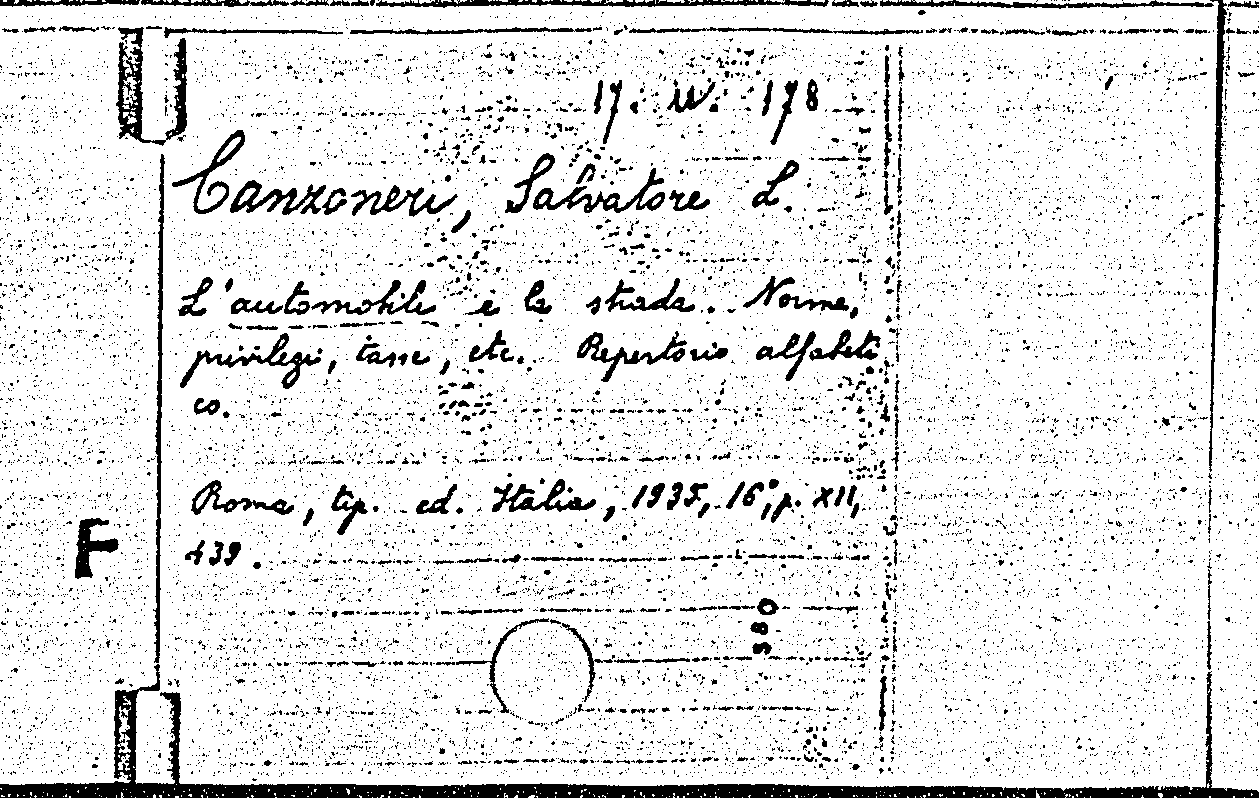 17. W. 178
Canzoneri, Salvatore L.
L'automobile e la strada. Norme,
privilegi, tasse, etc. Repertorio alfabeti
co.
Roma, tip. ed. Italia, 1935, 16°, p. XII,
439.
F
580